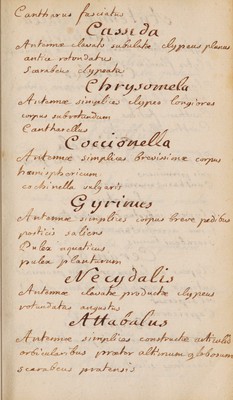 Cantharus fasciatus
Cassida
Antennæ clavato subulatæ clypeus planus
antice rotondatus
Scarabeus clypeatus
Chrysomela
Antennæ simplices clypeo longiores
corpus subrotundum
Cantharellus
Coccionella
Antennæ simplices brevissimæ corpus
hemisphoericum
cochinella vulgaris
Gyrinus
Antennæ simplices corpus breve pedibus
posticis saliens
Pulex aquaticus
pulex plantarum
Necydalis
Antennæ clavatæ productæ clypeus
rotundatus angustus
Attabalus
Antennæ simplices constructæ articulis
orbicularibus præter altimum globosum
scarabeus pratensis